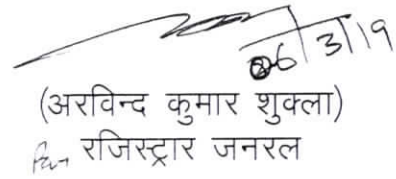 6/3/19
(अरविन्द कुमार शुक्ला)
रजिस्ट्रार जनरल